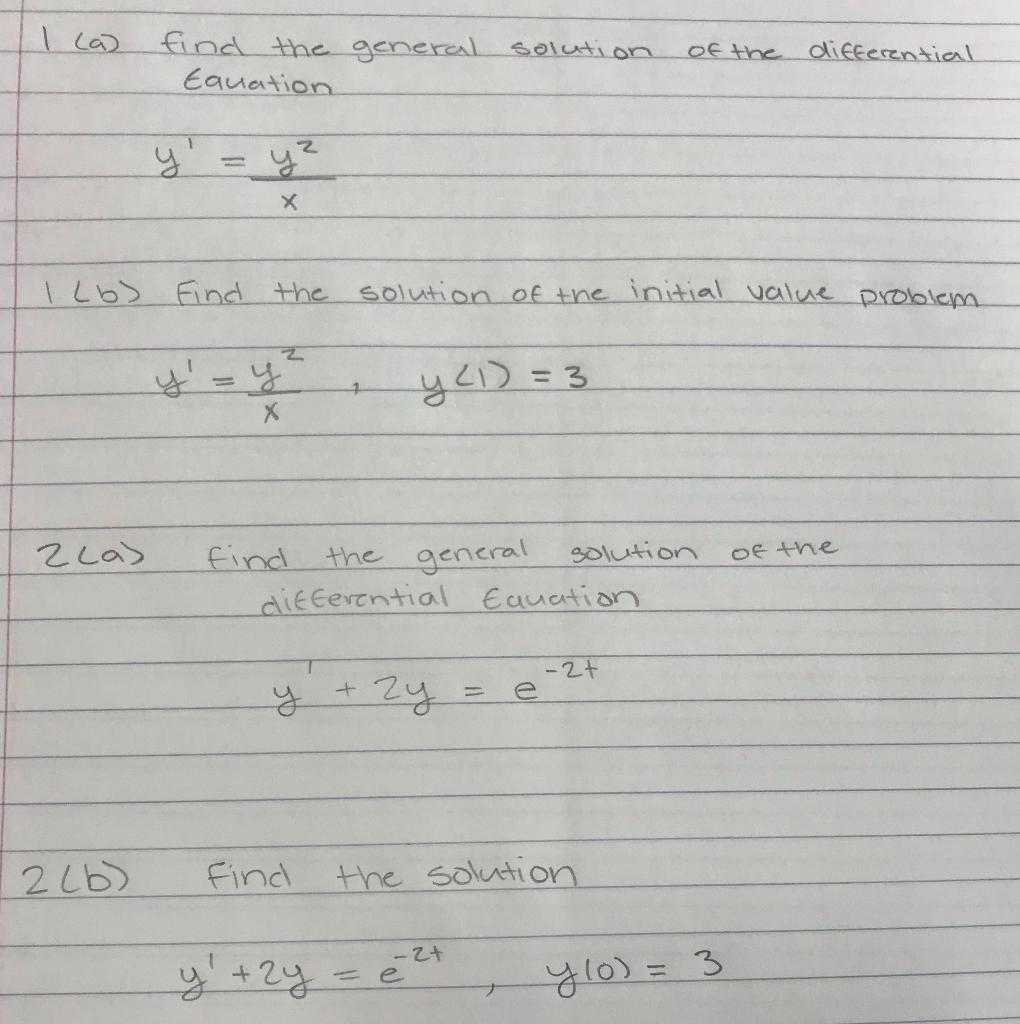 1 (a) find the general solution of the differential
Equation
y' = y²
x
1 (b) Find the solution of the initial value problem
y' = y² , y(1) = 3
x
2(a) find the general solution of the
differential Equation
y' + 2y = e^-2t
2(b) Find the solution
y' + 2y = e^-2t , y(0) = 3